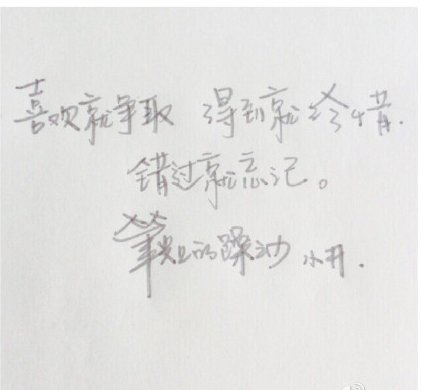 喜欢就争取 得到就珍惜.
错过就忘记。
笔尖的躁动 小开.